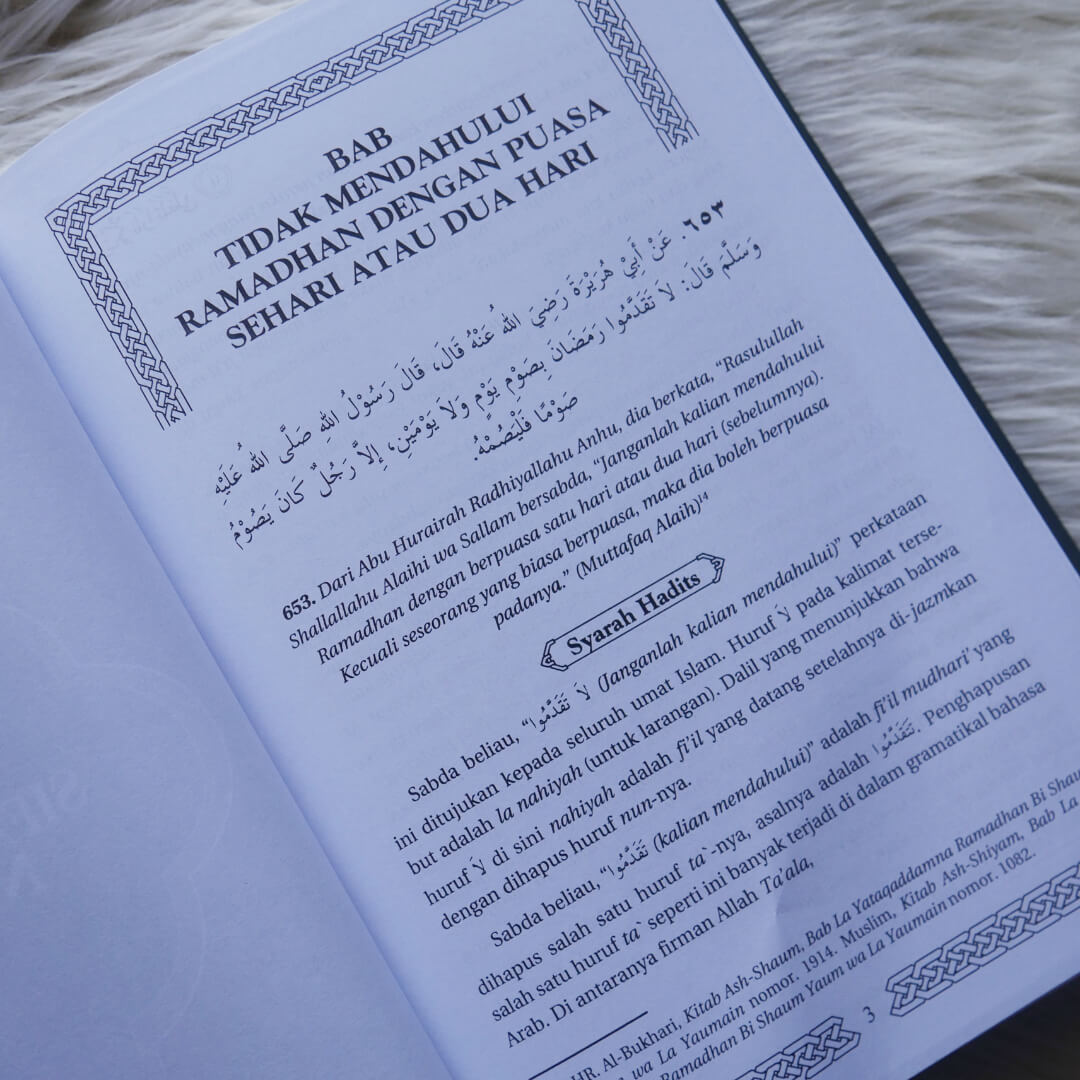 BAB
TIDAK MENDAHULUI
RAMADHAN DENGAN PUASA
SEHARI ATAU DUA HARI
٦٥٣. عَنْ أَبِيْ هُرَيْرَةَ رَضِيَ اللهُ عَنْهُ قَالَ، قَالَ رَسُوْلُ اللهِ صَلَّى اللهُ عَلَيْهِ
وَسَلَّمَ قَالَ: لاَ تَقَدَّمُوا رَمَضَانَ بِصَوْمِ يَوْمٍ وَلاَ يَوْمَيْنِ، إِلاَّ رَجُلٌ كَانَ يَصُوْمُ
صَوْمًا فَلْيَصُمْهُ.
653. Dari Abu Hurairah Radhiyallahu Anhu, dia berkata, "Rasulullah
Shallallahu Alaihi wa Sallam bersabda, "Janganlah kalian mendahului
Ramadhan dengan berpuasa satu hari atau dua hari (sebelumnya).
Kecuali seseorang yang biasa berpuasa, maka dia boleh berpuasa
padanya." (Muttafaq Alaih)¹⁴
Syarah Hadits
Sabda beliau, "لاَ تَقَدَّمُوا (Janganlah kalian mendahului)" perkataan
ini ditujukan kepada seluruh umat Islam. Huruf لاَ pada kalimat terse-
but adalah la nahiyah (untuk larangan). Dalil yang menunjukkan bahwa
huruf لاَ di sini nahiyah adalah fi'il yang datang setelahnya di-jazmkan
dengan dihapus huruf nun-nya.
Sabda beliau, "تَقَدَّمُوا (kalian mendahului)" adalah fi'il mudhari' yang
dihapus salah satu huruf ta`-nya, asalnya adalah تَتَقَدَّمُوا. Penghapusan
salah satu huruf ta` seperti ini banyak terjadi di dalam gramatikal bahasa
Arab. Di antaranya firman Allah Ta'ala,
HR. Al-Bukhari, Kitab Ash-Shaum, Bab La Yataqaddamna Ramadhan Bi Shaum
wa La Yaumain nomor. 1914. Muslim, Kitab Ash-Shiyam, Bab La
Ramadhan Bi Shaum Yaum wa La Yaumain nomor. 1082.
3